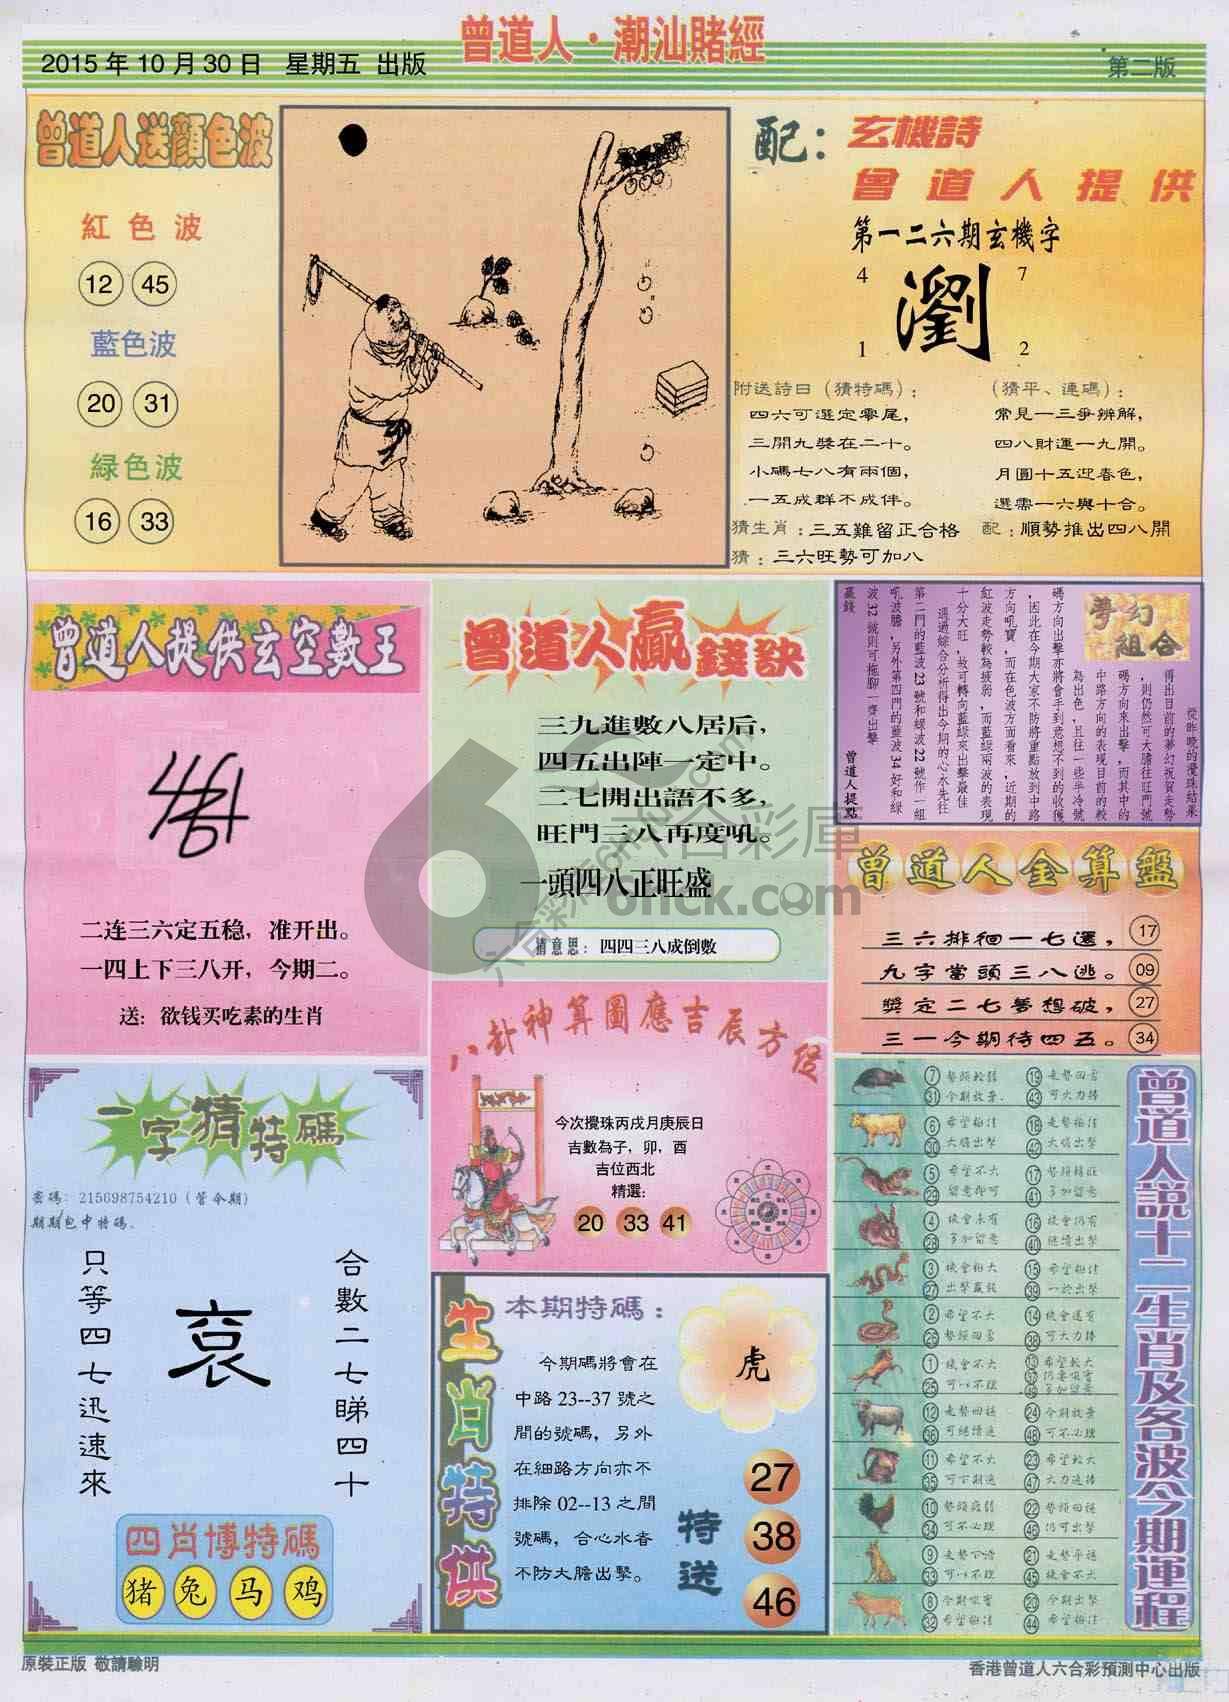 曾道人·潮汕賭經
2015年10月30日 星期五 出版
第二版
曾道人送顏色波
紅色波
12 45
藍色波
20 31
緑色波
16 33
配：玄機詩
曾道人提供
第一二六期玄機字
4 7
瀏
1 2
附送詩曰（猜特碼）：
四六可選定零尾，
三開九獎在二十。
小碼七八有兩個，
一五成群不成伴。
猜生肖：三五難留正合格
猜：三六旺勢可加八
（猜平、連碼）：
常見一三爭辨解，
四八財運一九開。
月圓十五迎春色，
選需一六與十合。
配：順勢推出四八開
曾道人提供玄空數王
二连三六定五稳，准开出。
一四上下三八开，今期二。
送：欲钱买吃素的生肖
曾道人贏錢訣
三九進數八居后，
四五出陣一定中。
二七開出語不多，
旺門三八再度吼。
一頭四八正旺盛
猜意思：四四三八成倒數
夢幻組合
從昨晚的攪珠結果
得出目前的夢幻祝賀走勢
，則仍然可大膽往旺門號
碼方向來出擊，而其中的
中路方向的表現目前的較
為出色，且往一些半冷號
碼方向出擊亦將會手到意想不到的收獲
，因此在今期大家不防將重點放到中路
方向吼寶，而在色波方面看來，近期的
紅波走勢較為疲弱，而藍綠兩波的表現
十分大旺，故可轉向藍綠來出擊最佳
通過綜合分析得出今期的心水先往
第二門的藍波23號和綠波22號作一組
吼波膽，另外第四門的藍波34好和綠
波32號則可拖腳一齊出擊
贏錢
曾道人提點
曾道人金算盤
三六排徊一七選， 17
九字當頭三八逃。 09
獎定二七夢想破， 27
三一今期待四五。 34
八卦神算圖應吉辰方位
今次攪珠丙戌月庚辰日
吉數為子，卯，酉
吉位西北
精選：
20 33 41
一字猜特碼
密碼：215698754210（管今期）
期期包中特碼.
合數二七睇四十
哀
只等四七迅速來
四肖博特碼
猪 兔 马 鸡
生肖特供
本期特碼：
今期碼將會在
中路23--37號之
間的號碼，另外
在細路方向亦不
排除02--13之間
號碼，合心水者
不防大膽出擊。
虎
特送
27
38
46
曾道人説十二生肖及各波今期運程
7 31 19 43
6 30 18 42
5 29 17 41
4 28 16 40
3 27 15 39
2 26 14 38
1 25 13 37 49
12 36 24 48
11 35 23 47
10 34 22 46
9 33 21 45
8 32 20 44
原裝正版 敬請驗明
香港曾道人六合彩預測中心出版
六合彩庫
6hck.com